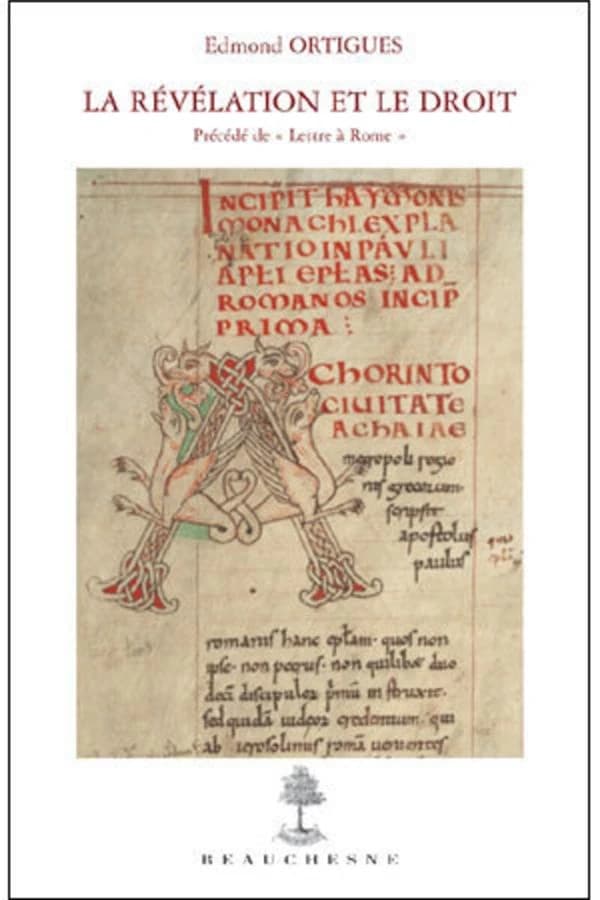 Edmond ORTIGUES
LA RÉVÉLATION ET LE DROIT
Précédé de « Lettre à Rome »
INCIPIT hAYMONIS
MONAChI.EXPLA
NATIO IN PAVLI
APŁI EPŁAS: AD
ROMANOS INCIP̄
PRIMA :
A ChORINTO
CIUITATE
AChAIAE
metropoli regio
nis grecorum.
scripsit
apostolus
paulus
romanis hanc epłam. quos non
ipse. non petrus. non quilibet duo
deci discipulor primu instruxit.
sed quidā iudeor credentium. qui
ab ierosolimis romā uenientes
BEAUCHESNE